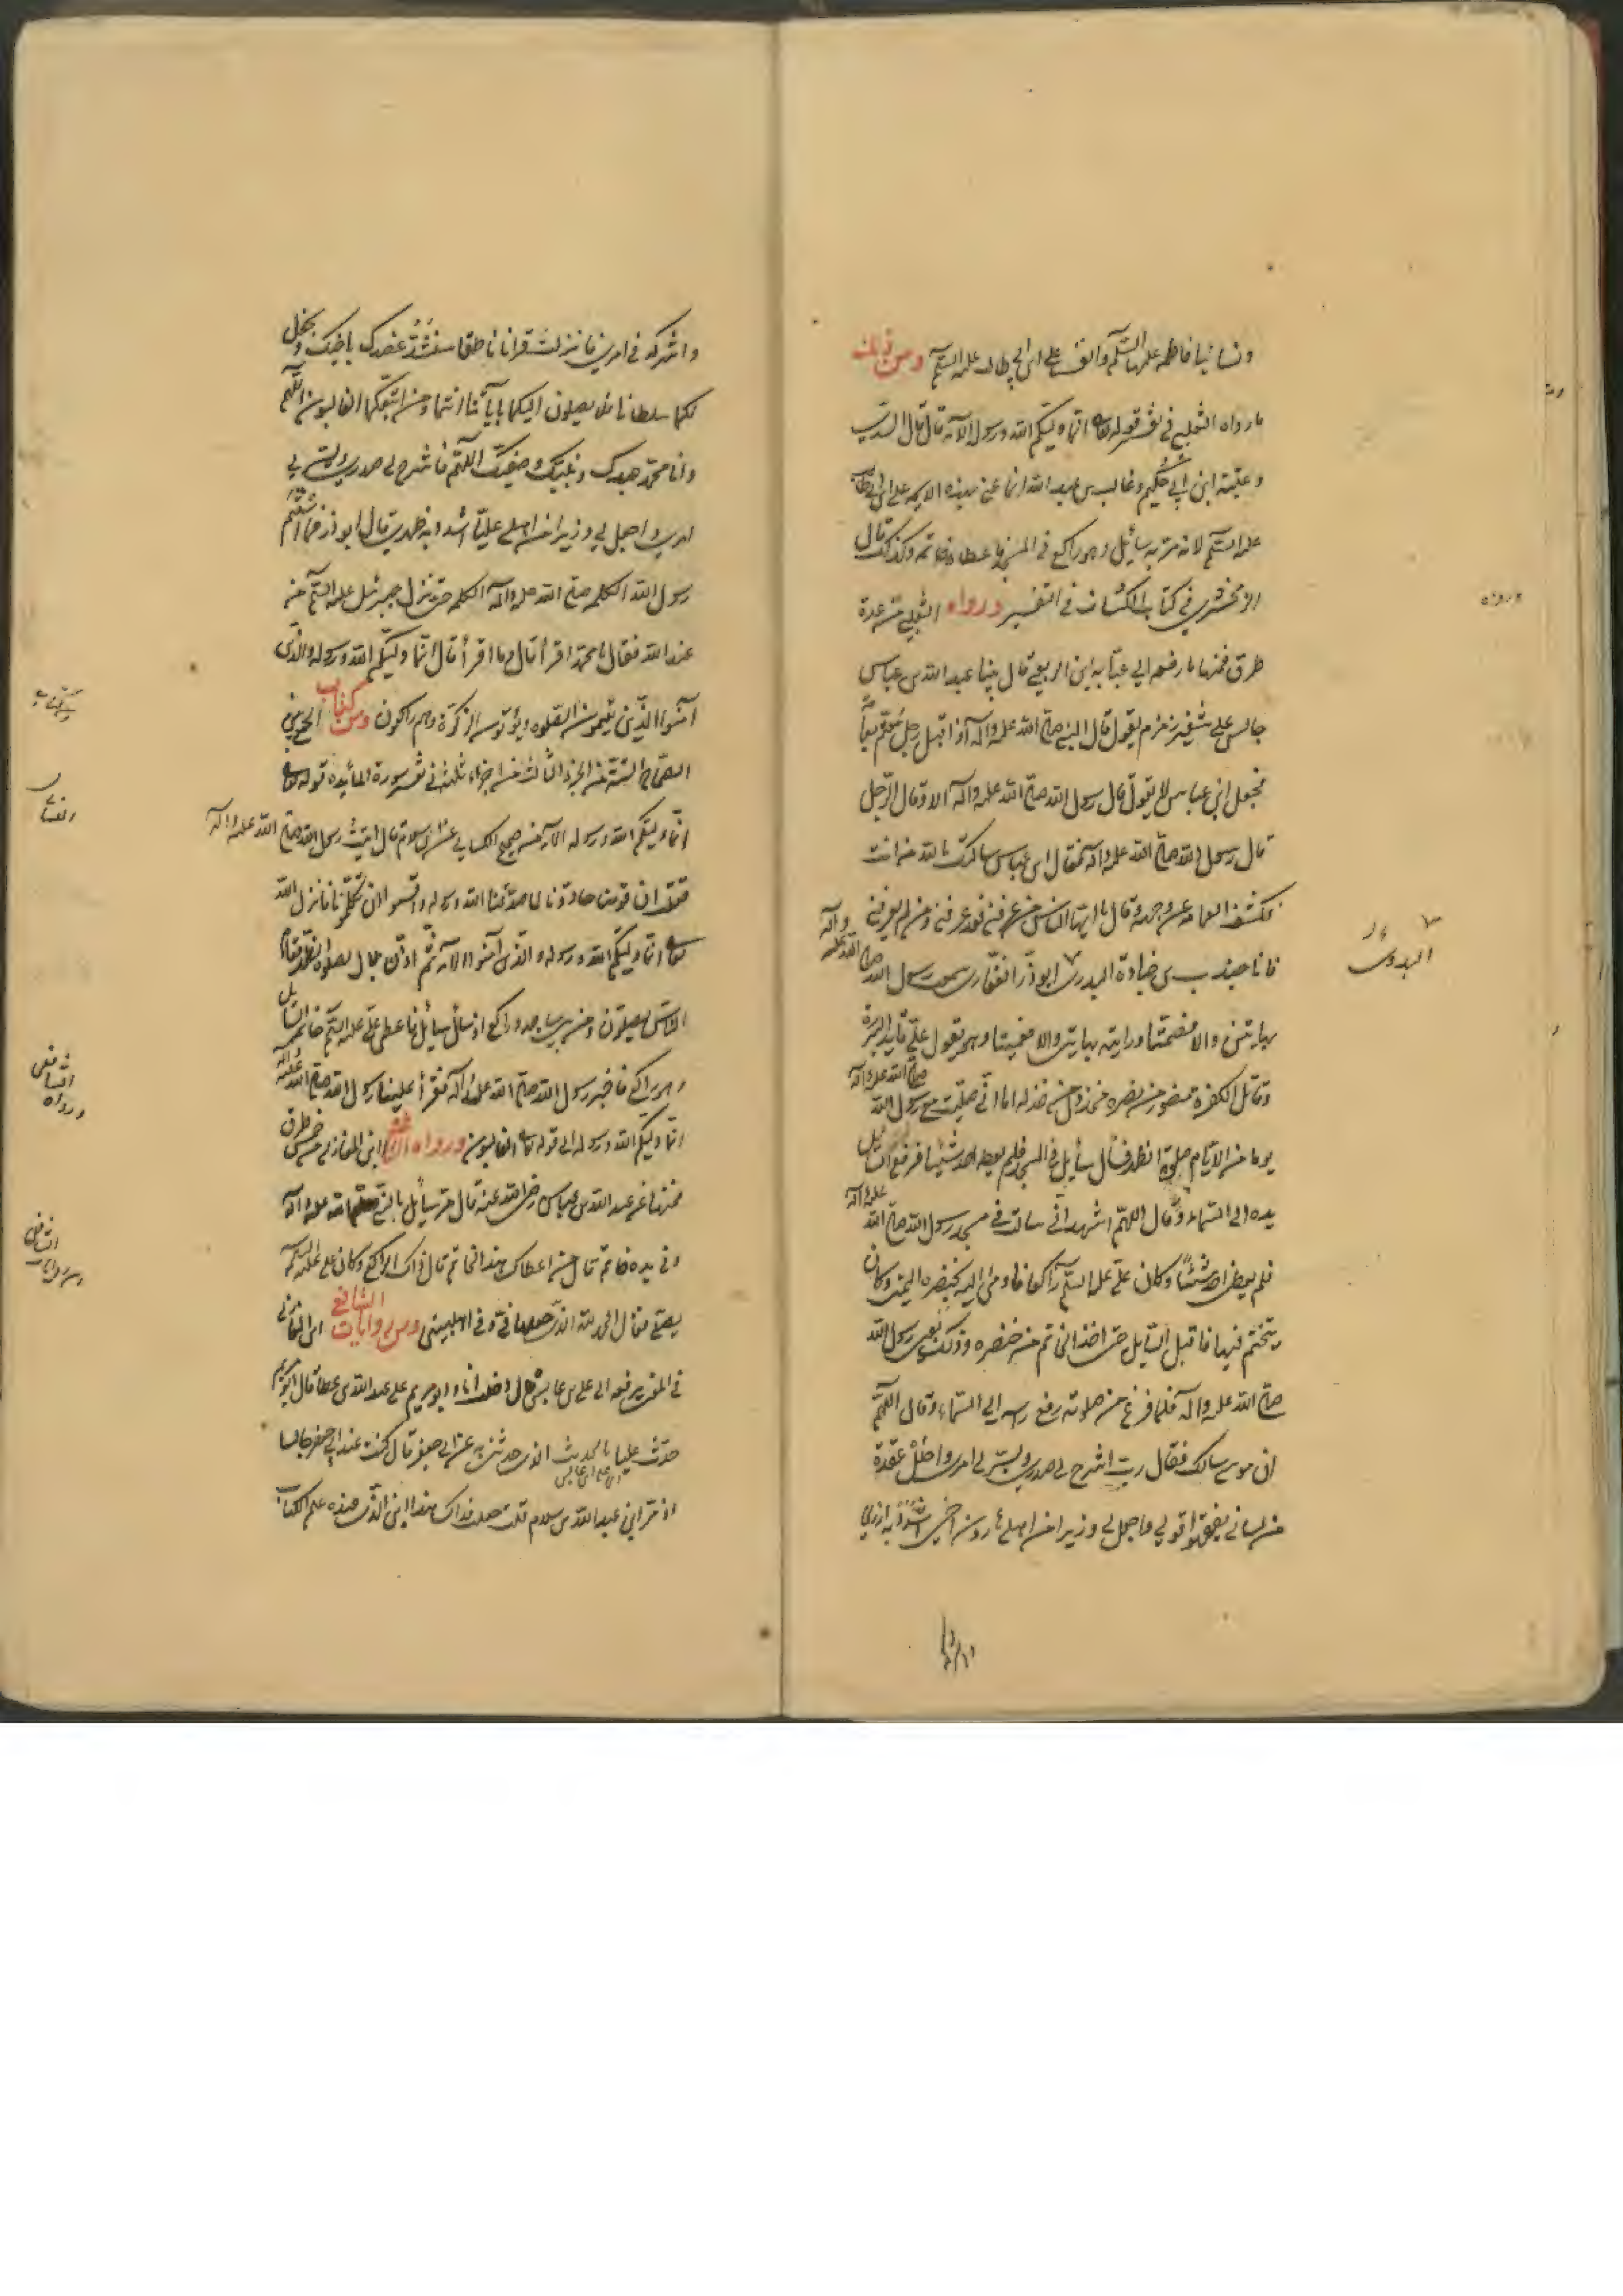 ونسائنا فاطمه علیها السلم وانفسنا علی ابن ابی طالب علیه السلم ومن ذلك
ما رواه الثعلبی فی تفسیر قوله تعالی انما ولیکم الله ورسوله الآیه قال قال السدی
وعتبة ابن ابی حکیم وغالب بن عبد الله انما عنی بهذه الایه علی ابن ابی طالب
علیه السلم لانه مر به سائل وهو راکع فی المسجد فاعطاه خاتمه وکذلك قال
الزمخشری فی کتاب الکشاف فی التفسیر ورواه الثعلبی من عدة
طرق فمنها ما رفعه الی عبایه ابن الربعی قال بینا عبد الله بن عباس
جالس علی شفیر زمزم یقول قال النبی صلی الله علیه واله اذ اقبل رجل متعمم بعمامة
فجعل ابن عباس لا یقول قال رسول الله صلی الله علیه واله الا وقال الرجل
قال رسول الله صلی الله علیه واله فقال ابن عباس سالتك بالله من انت
فکشف العمامه عن وجهه وقال یا ایها الناس من عرفنی فقد عرفنی ومن لم یعرفنی
فانا جندب بن جنادة البدری ابوذر الغفاری سمعت رسول الله صلی الله علیه واله
بهاتین والا فصمتا ورایته بهاتین والا فعمیتا وهو یقول علی قاید البررة
وقاتل الکفره منصور من نصره مخذول من خذله اما انی صلیت مع رسول الله صلی الله علیه واله
یوما من الایام صلوة الظهر فسأل سایل فی المسجد فلم یعطه احد شیئا فرفع السایل
یده الی السماء وقال اللهم اشهد انی سالت فی مسجد رسول الله صلی الله علیه واله
فلم یعطنی احد شیئا وکان علی علیه السلم راکعا فاومی الیه بخنصره الیمنی وکان
یتختم فیها فاقبل السایل حتی اخذ الخاتم من خنصره وذلك بعین رسول الله
صلی الله علیه واله فلما فرغ من صلوته رفع راسه الی السماء وقال اللهم
ان موسی سالك فقال رب اشرح لی صدری ویسر لی امری واحلل عقدة
من لسانی یفقهوا قولی واجعل لی وزیرا من اهلی هارون اخی اشدد به ازری
ورواه
البدری
واشرکه فی امری فانزلت قرانا ناطقا سنشد عضدك باخیك ونجعل
لکما سلطانا فلا یصلون الیکما بایاتنا انتما ومن اتبعکما الغالبون اللهم
وانا محمد عبدك ونبیك وصفیك اللهم فاشرح لی صدری ویسر لی
امری واجعل لی وزیرا من اهلی علیا اشدد به ظهری قال ابوذر فما استتم
رسول الله الکلمه صلی الله علیه واله الکلمه حتی نزل جبرئیل علیه السلم من
عند الله فقال یا محمد اقرأ قال وما اقرأ قال انما ولیکم الله ورسوله والذین
آمنوا الذین یقیمون الصلوه ویؤتون الزکوة وهم راکعون ومن کتاب الجمع بین
الصحاح الستة من الجزء الثالث من اجزاء ثلثه فی تفسیر سورة المائده قوله تعالی
انما ولیکم الله ورسوله الآیه من صحیح النسایی عن ابن سلام قال اتیت رسول الله صلی الله علیه واله
فقلت ان قومنا حادونا لما صدقنا الله ورسوله واقسموا ان لا یکلمونا فانزل الله
تعالی انما ولیکم الله ورسوله والذین آمنوا الآیه ثم اذن بلال لصلوة الظهر فقام
الناس یصلون فمن بین ساجد وراکع اذ سئل سائل فاعطی علی علیه السلم خاتمه السایل
وهو راکع فاخبر رسول الله صلی الله علیه واله فقرأ علینا رسول الله صلی الله علیه واله
انما ولیکم الله ورسوله الی قوله تعالی الغالبون ورواه الشافعی ابن المغازلی من خمس طرق
فمنها عن عبد الله بن عباس رضی الله عنه قال مر سائل بالنبی صلی الله علیه واله
وفی یده خاتم قال من اعطاك هذا الخاتم قال ذاك الراکع وکان علی علیه السلم
یصلی فقال الحمد لله الذی جعلها فی وفی اهل بیتی ومن روایات الشافعی ابن المغازلی
فی المعنی یرفعه الی علی بن عابس قال دخلت انا وابو مریم علی عبد الله بن عطا قال ابو مریم
حدث علیا بالحدیث الذی حدثتنی عن ابی جعفر قال کنت عند ابی جعفر جالسا
اذ مر ابن عبد الله بن سلام قلت جعلت فداك هذا ابن الذی عنده علم الکتاب
ومن کتاب
النسایی
الشافعی
ورواه
الشافعی
ومن روایات